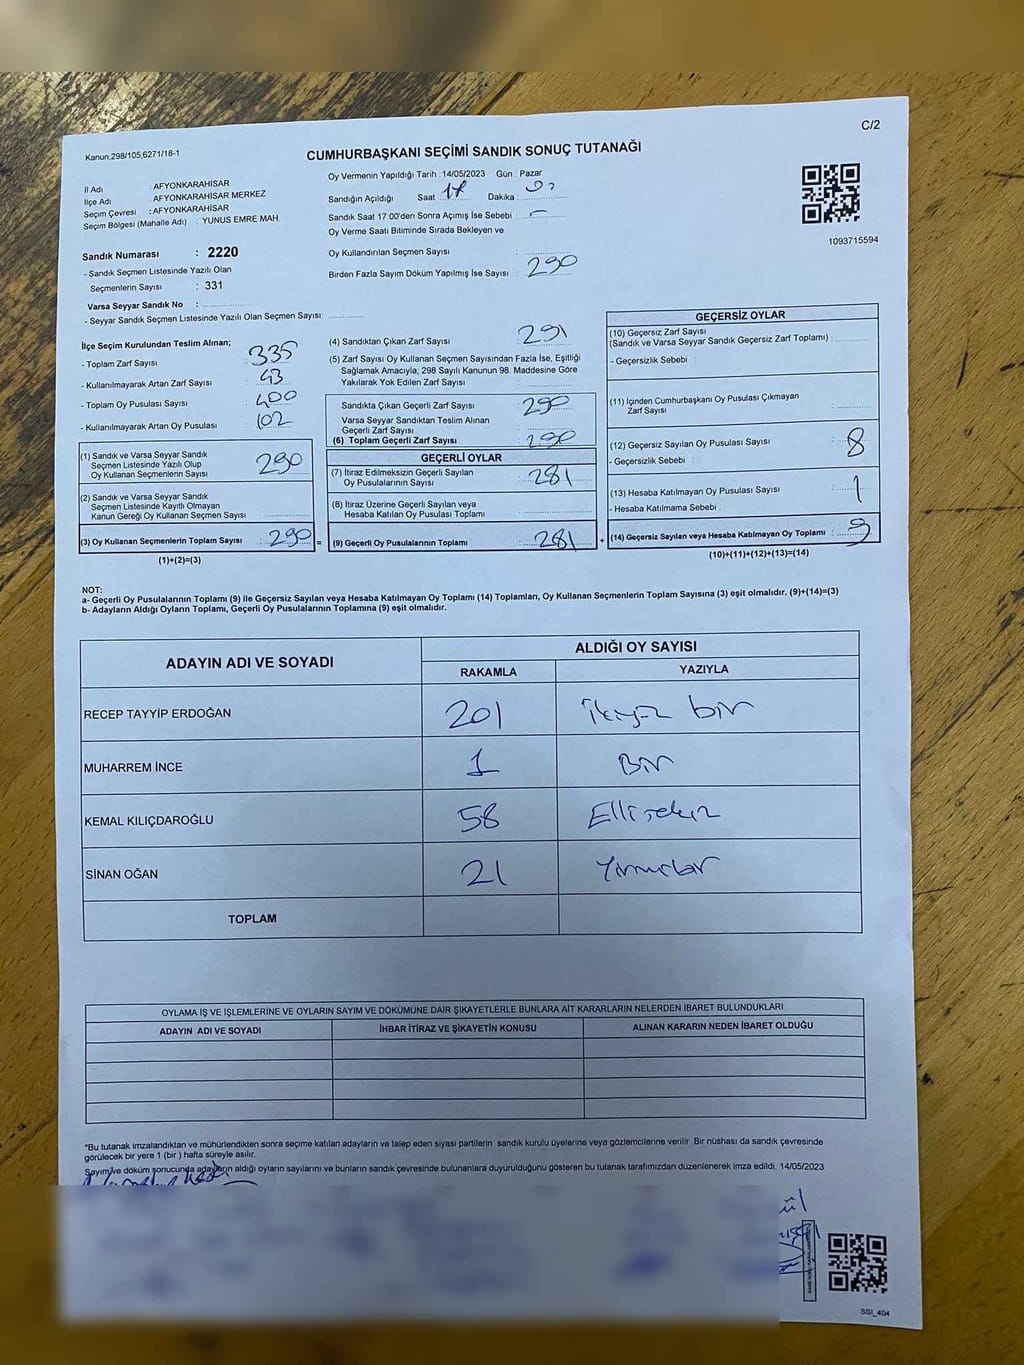 C/2
Kanun,298/105,6271/18-1
CUMHURBAŞKANI SEÇİMİ SANDIK SONUÇ TUTANAĞI
İl Adı : AFYONKARAHİSAR
İlçe Adı AFYONKARAHİSAR MERKEZ
Seçim Çevresi : AFYONKARAHİSAR
Seçim Bölgesi (Mahalle Adı) : YUNUS EMRE MAH.
Sandık Numarası : 2220
- Sandık Seçmen Listesinde Yazılı Olan
Seçmenlerin Sayısı : 331
Varsa Seyyar Sandık No :
- Seyyar Sandık Seçmen Listesinde Yazılı Olan Seçmen Sayısı:
Oy Vermenin Yapıldığı Tarih : 14/05/2023 Gün : Pazar
Sandığın Açıldığı Saat 17 Dakika :
Sandık Saat 17:00'den Sonra Açımış İse Sebebi : -
Oy Verme Saati Bitiminde Sırada Bekleyen ve
Oy Kullandırılan Seçmen Sayısı :
Birden Fazla Sayım Döküm Yapılmış İse Sayısı : 290
1093715594
İlçe Seçim Kurulundan Teslim Alınan;
- Toplam Zarf Sayısı : 335
- Kullanılmayarak Artan Zarf Sayısı : 43
- Toplam Oy Pusulası Sayısı : 400
- Kullanılmayarak Artan Oy Pusulası : 102
(1) Sandık ve Varsa Seyyar Sandık
Seçmen Listesinde Yazılı Olup
Oy Kullanan Seçmenlerin Sayısı : 290
(2) Sandık ve Varsa Seyyar Sandık
Seçmen Listesinde Kayıtlı Olmayan
Kanun Gereği Oy Kullanan Seçmen Sayısı :
(3) Oy Kullanan Seçmenlerin Toplam Sayısı : 290 =
(1)+(2)=(3)
(4) Sandıktan Çıkan Zarf Sayısı : 291
(5) Zarf Sayısı Oy Kullanan Seçmen Sayısından Fazla İse, Eşitliği
Sağlamak Amacıyla, 298 Sayılı Kanunun 98. Maddesine Göre
Yakılarak Yok Edilen Zarf Sayısı :
Sandıkta Çıkan Geçerli Zarf Sayısı : 290
Varsa Seyyar Sandıktan Teslim Alınan
Geçerli Zarf Sayısı :
(6) Toplam Geçerli Zarf Sayısı : 290
GEÇERLİ OYLAR
(7) İtiraz Edilmeksizin Geçerli Sayılan
Oy Pusulalarının Sayısı : 281
(8) İtiraz Üzerine Geçerli Sayılan veya
Hesaba Katılan Oy Pusulası Toplamı :
(9) Geçerli Oy Pusulalarının Toplamı : 281 +
GEÇERSİZ OYLAR
(10) Geçersiz Zarf Sayısı
(Sandık ve Varsa Seyyar Sandık Geçersiz Zarf Toplamı) :
- Geçersizlik Sebebi :
(11) İçinden Cumhurbaşkanı Oy Pusulası Çıkmayan
Zarf Sayısı :
(12) Geçersiz Sayılan Oy Pusulası Sayısı : 8
- Geçersizlik Sebebi :
(13) Hesaba Katılmayan Oy Pusulası Sayısı : 1
- Hesaba Katılmama Sebebi :
(14) Geçersiz Sayılan veya Hesaba Katılmayan Oy Toplamı : 9
(10)+(11)+(12)+(13)=(14)
NOT:
a- Geçerli Oy Pusulalarının Toplamı (9) ile Geçersiz Sayılan veya Hesaba Katılmayan Oy Toplamı (14) Toplamları, Oy Kullanan Seçmenlerin Toplam Sayısına (3) eşit olmalıdır. (9)+(14)=(3)
b- Adayların Aldığı Oyların Toplamı, Geçerli Oy Pusulalarının Toplamına (9) eşit olmalıdır.
ADAYIN ADI VE SOYADI ALDIĞI OY SAYISI
RAKAMLA YAZIYLA
RECEP TAYYİP ERDOĞAN 201 ikiyüz bir
MUHARREM İNCE 1 Bir
KEMAL KILIÇDAROĞLU 58 Ellisekiz
SİNAN OĞAN 21 Yirmibir
TOPLAM
OYLAMA İŞ VE İŞLEMLERİNE VE OYLARIN SAYIM VE DÖKÜMÜNE DAİR ŞİKAYETLERLE BUNLARA AİT KARARLARIN NELERDEN İBARET BULUNDUKLARI
ADAYIN ADI VE SOYADI İHBAR İTİRAZ VE ŞİKAYETİN KONUSU ALINAN KARARIN NEDEN İBARET OLDUĞU
*Bu tutanak imzalandıktan ve mühürlendikten sonra seçime katılan adayların ve talep eden siyasi partilerin sandık kurulu üyelerine veya gözlemcilerine verilir. Bir nüshası da sandık çevresinde
görülecek bir yere 1 (bir) hafta süreyle asılır.
Sayım ve döküm sonucunda adayların aldığı oyların sayılarını ve bunların sandık çevresinde bulunanlara duyurulduğunu gösteren bu tutanak tarafımızdan düzenlenerek imza edildi. 14/05/2023
SSI_404